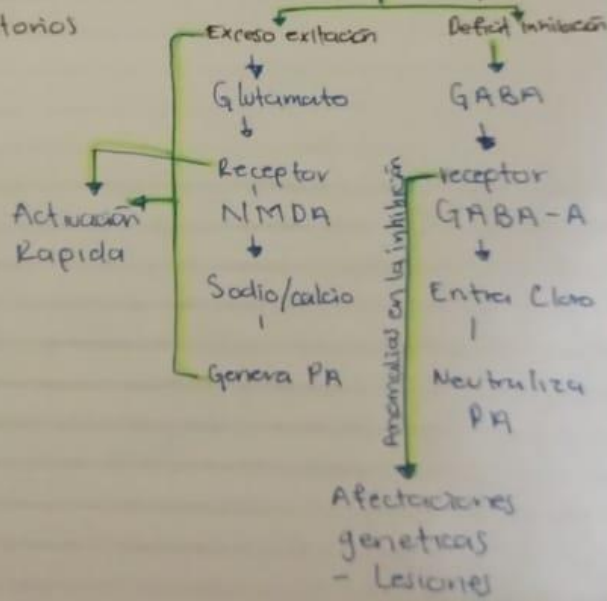 Exceso exitación
Glutamato
Receptor
NMDA
Sodio/calcio
Genera PA
Activación
Rapida
Deficit inhibición
GABA
receptor
GABA-A
Entra Cloro
Neutraliza
PA
Anomalias en la inhibición
Afectaciones
geneticas
- Lesiones